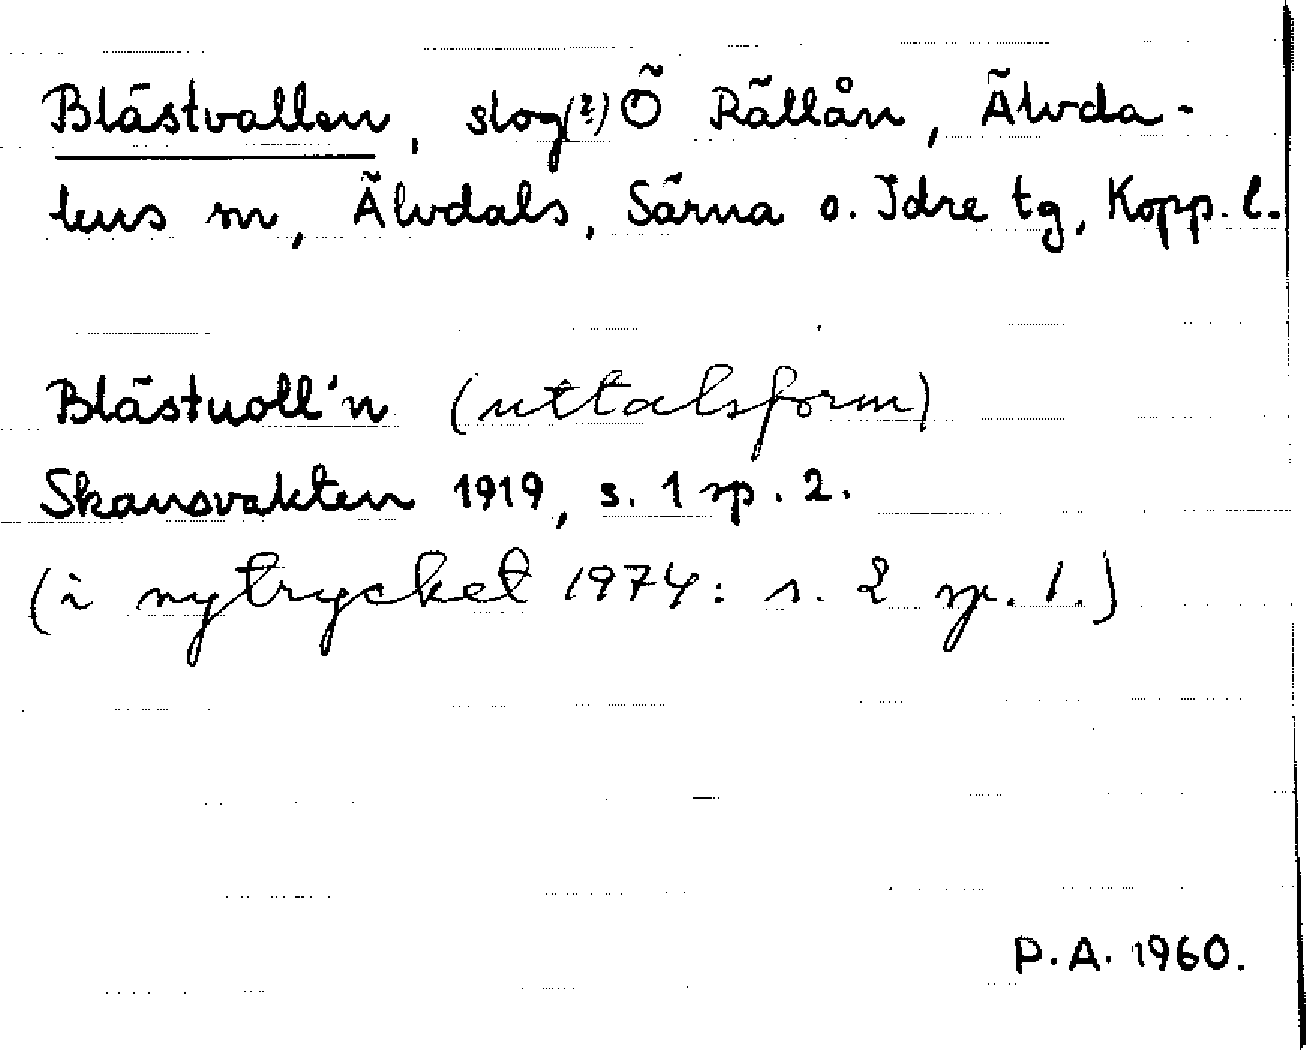 Blästvallen, slog(?) Ö Rällån, Älvda-
lens sn, Älvdals, Särna o. Idre tg, Kopp. l.
Blästuoll'n (uttalsform)
Skansvakten 1919, s. 1 sp. 2.
(i nytrycket 1974: s. 2 sp. 1.)
P.A. 1960.